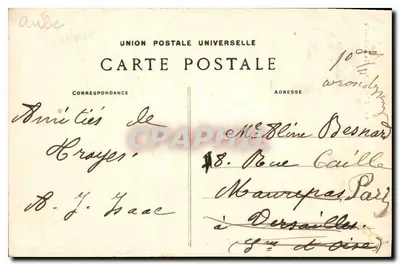 Aube
UNION POSTALE UNIVERSELLE
CARTE POSTALE
CORRESPONDANCE
ADRESSE
10eme
arrond
Amitiés de
Troyes
A. J. Isaac
CARTAPHILIE
Me Aline Besnard
18. Rue Caille
Maurepas Paris
à Versailles